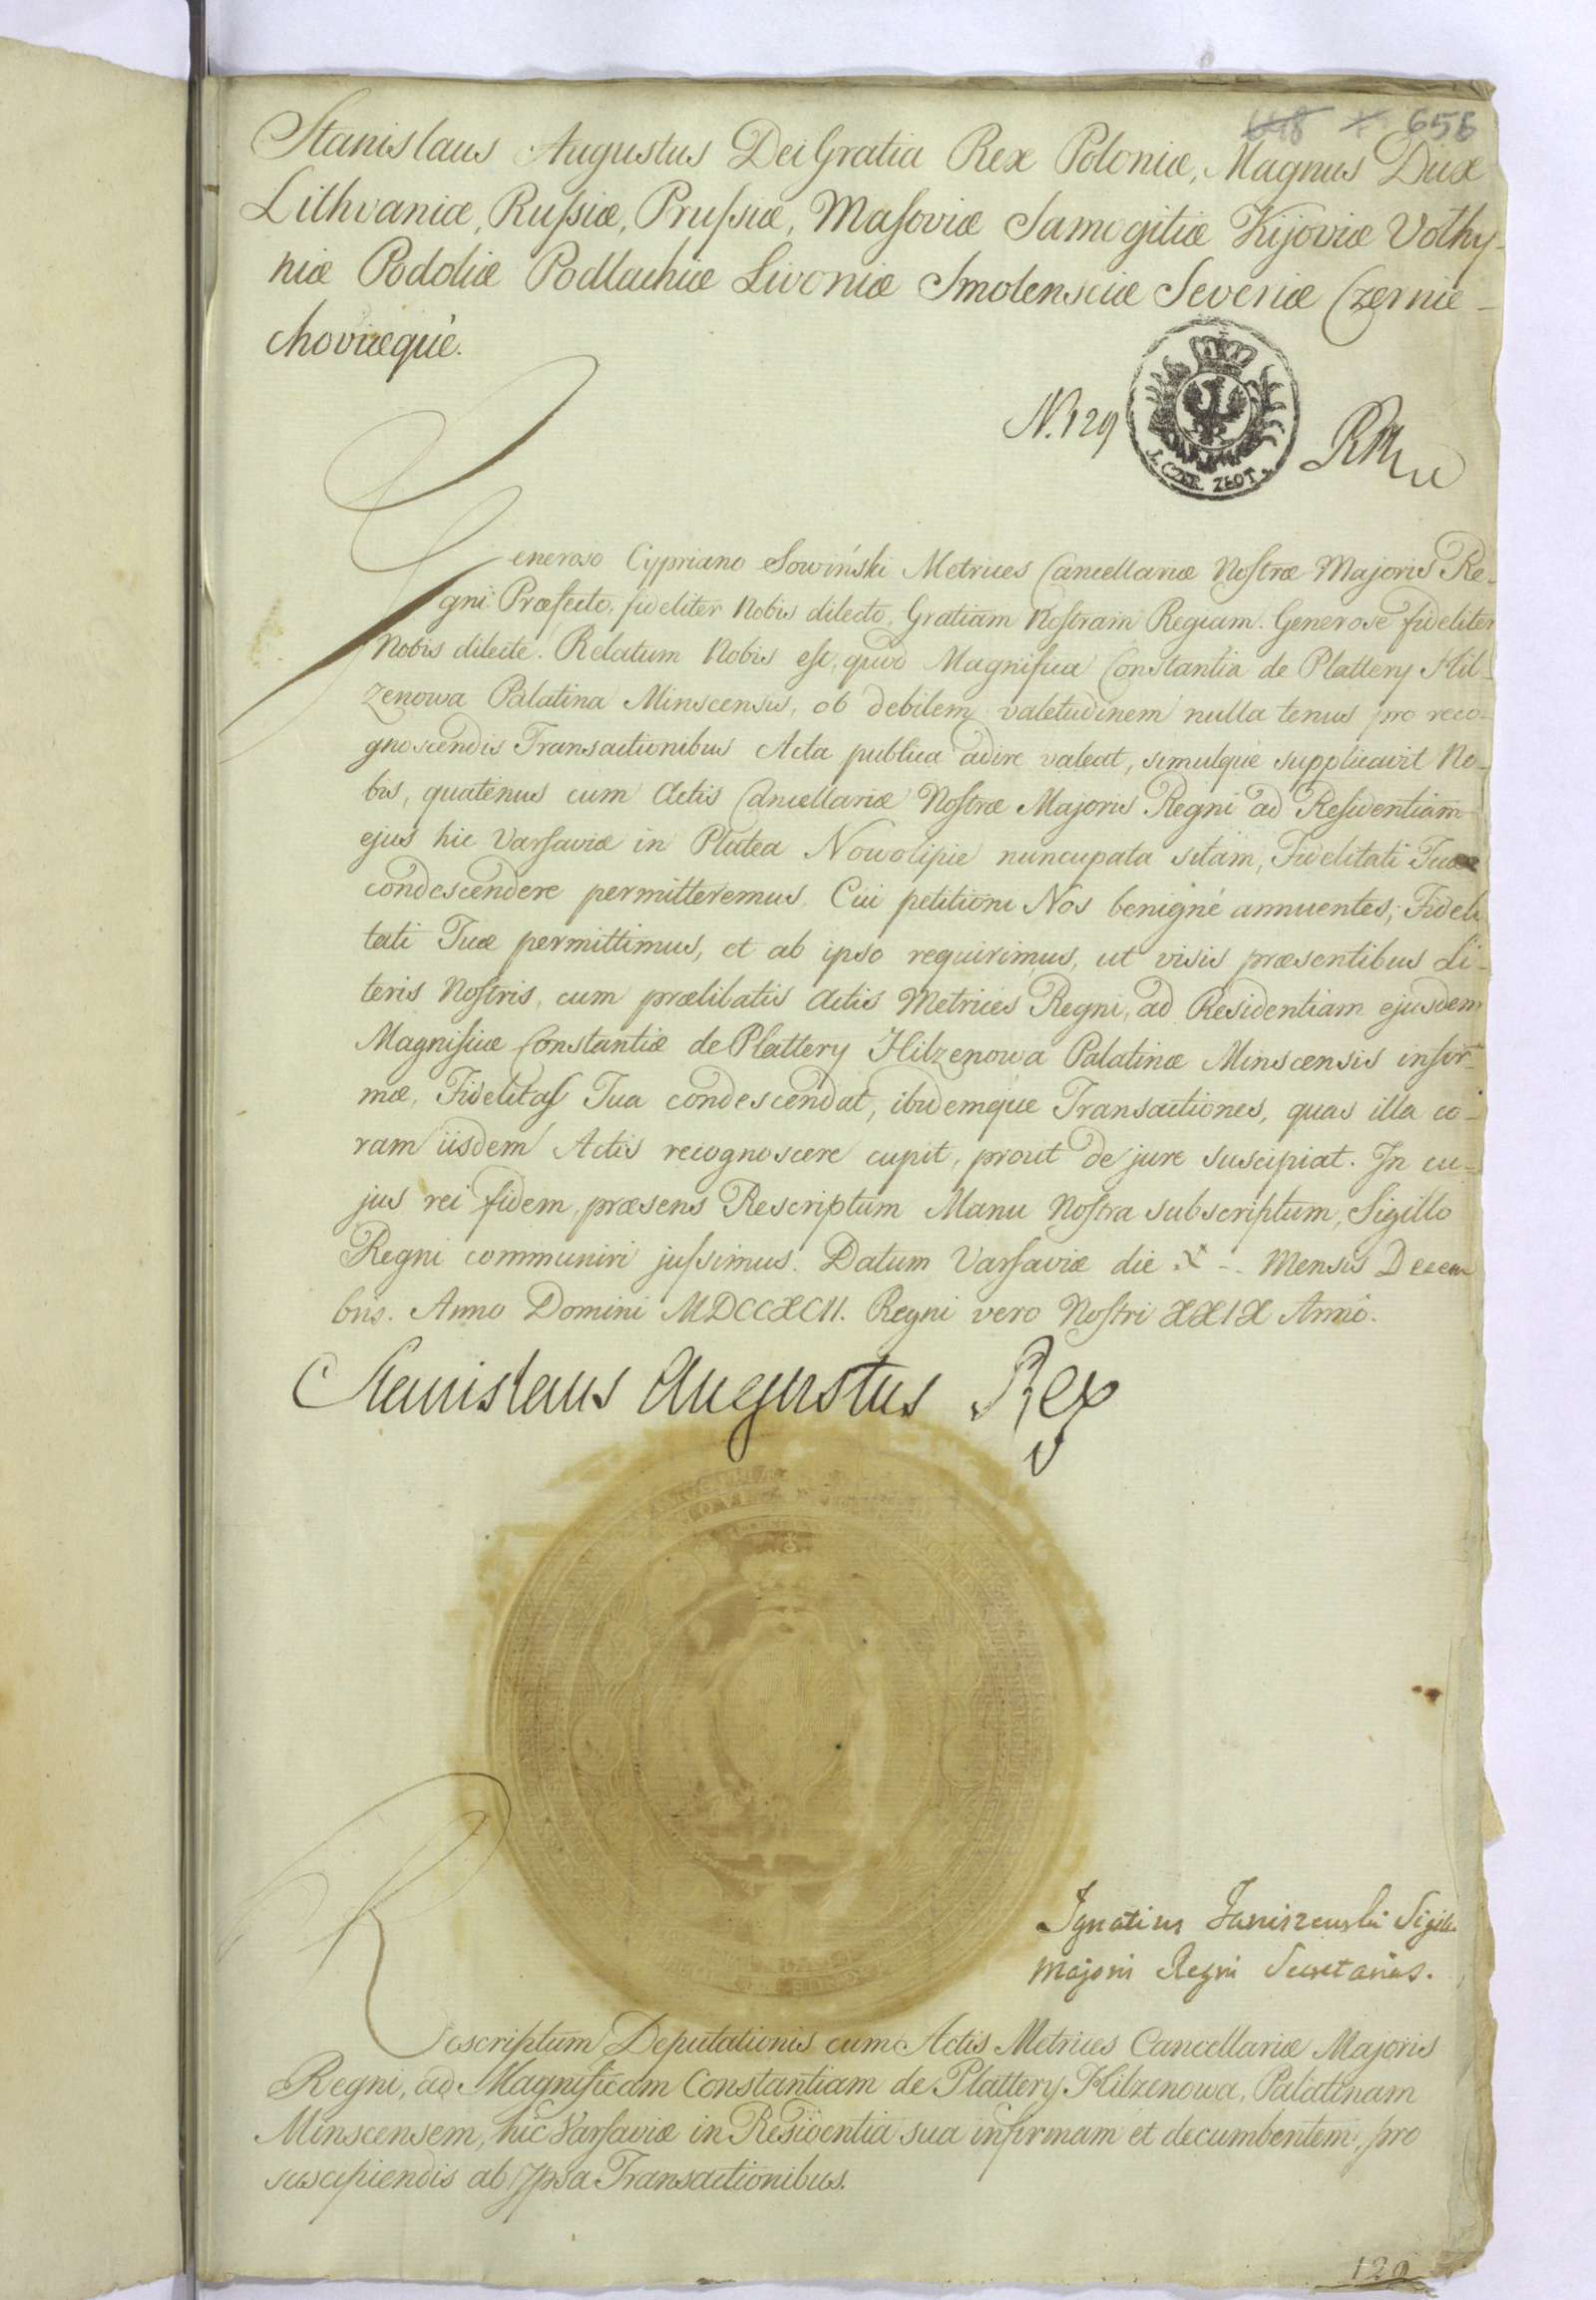 648 656
Stanislaus Augustus Dei Gratia Rex Poloniæ, Magnus Dux
Lithvaniæ, Rufsiæ, Prufsiæ, Masoviæ Samogitiæ Kijoviæ Volhy-
niæ Podoliæ Podlachiæ Livoniæ Smolensciæ Severiæ Czernie-
choviæqué.
N. 129
1. CZER. ZŁOT.
Generoso Cypriano Sowiński Metrices Cancellariæ Nostræ Majoris Re-
gni Præfecto, fideliter Nobis dilecto, Gratiam Nostram Regiam. Generose fideliter
Nobis dilecte. Relatum Nobis est, quod Magnifica Constantia de Plattery Hil-
zenowa Palatina Minscensis, ob debilem valetudinem nulla tenus pro reco-
gnoscendis Transactionibus Acta publica adire valeat, simulque supplicavit No-
bis, quatenus cum Actis Cancellariæ Nostræ Majoris Regni ad Residentiam
ejus hic Varsaviæ in Platea Nowolipie nuncupata sitam, Fidelitati Tuæ
condescendere permitteremus. Cui petitioni Nos benigné annuentes, Fideli
tati Tuæ permittimus, et ab ipso requirimus, ut visis præsentibus Li-
teris Nostris, cum prælibatis Actis Metrices Regni, ad Residentiam ejusdem
Magnificæ Constantiæ de Plattery Hilzenowa Palatinæ Minscensis infir-
mæ, Fidelitas Tua condescendat, ibidemque Transactiones, quas illa co-
ram iisdem Actis recognoscere cupit, prout de jure suscipiat. In cu-
jus rei fidem, præsens Rescriptum Manu Nostra subscriptum, Sigillo
Regni communiri jufsimus. Datum Varsaviæ die X - Mensis Decem
bris. Anno Domini MDCCXCII. Regni vero Nostri XXIX Anno.
Stanislaus Augustus Rex
Ignatius Janiszewski Sigilli
Majoris Regni Secretarius.
Rescriptum Deputationis cum Actis Metrices Cancellariæ Majoris
Regni, ad Magnificam Constantiam de Plattery Hilzenowa, Palatinam
Minscensem, hic Varsaviæ in Residentia sua infirmam et decumbentem, pro
suscipiendis ab Ipsa Transactionibus.
129